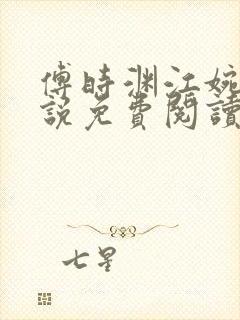 傅時渊江婉
說免費閱讀
七星